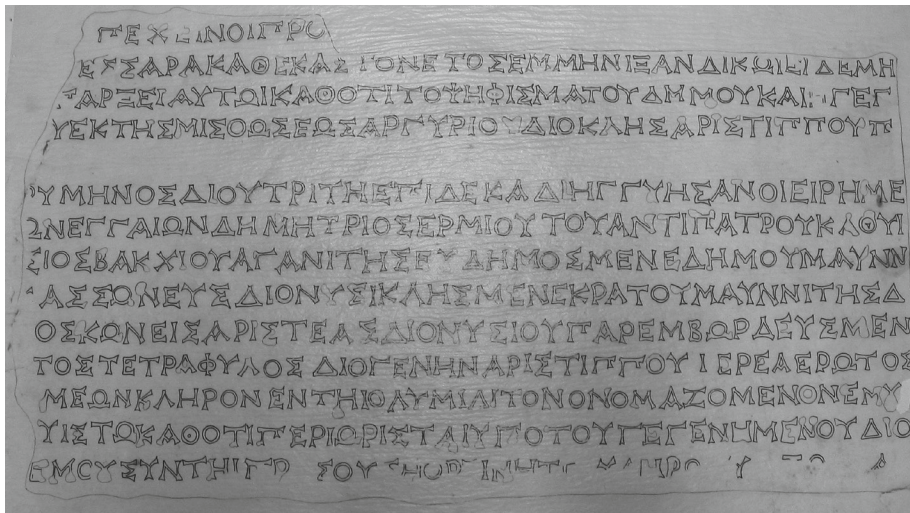 ΠΕΧ ΙΝΟΙΠΡΟ
ΕΣΣΑΡΑΚΑΘΕΚΑΣ ΤΟΝΕΤΟΣΕΜΜΗΝΙΞΑΝΔΙΚΩΙΕΙΔΕΜΗ
ΑΡΞΕΙΑΥΤΩΙΚΑΘΟΤΙΤΟΨΗΦΙΣΜΑΤΟΥΔΗΜΟΥΚΑΙ ΓΕΓ
ΥΕΚΤΗΣΜΙΣΘΩΣΕΩΣΑΡΓΥΡΙΟΥΔΙΟΚΛΗΣΑΡΙΣΤΙΠΠΟΥΠ
ΥΜΗΝΟΣΔΙΟΥΤΡΙΤΗΕΠΙΔΕΚΑΔΙΗΓΓΥΗΣΑΝΟΙΕΙΡΗΜΕ
ΩΝΕΓΓΑΙΩΝΔΗΜΗΤΡΙΟΣΕΡΜΙΟΥΤΟΥΑΝΤΙΠΑΤΡΟΥΚΛΘΥΙ
ΣΙΟΣΒΑΚΧΙΟΥΑΓΑΝΙΤΗΣΕΥΔΗΜΟΣΜΕΝΕΔΗΜΟΥΜΑΥΝΝ
ΑΣΣΩΝΕΥΣΔΙΟΝΥΣΙΚΛΗΣΜΕΝΕΚΡΑΤΟΥΜΑΥΝΝΙΤΗΣΔ
ΟΣΚΩΝΕΙΣΑΡΙΣΤΕΑΣΔΙΟΝΥΣΙΟΥΠΑΡΕΜΒΩΡΔΕΥΣΜΕΝ
ΤΟΣΤΕΤΡΑΦΥΛΟΣΔΙΟΓΕΝΗΝΑΡΙΣΤΙΠΠΟΥΙΕΡΕΑΕΡΩΤΟΣ
ΜΕΩΝΚΛΗΡΟΝΕΝΤΗΙΟΛΥΜΙΛΙΤΟΝΟΝΟΜΑΖΟΜΕΝΟΝΕΜΥ
ΥΙΣΤΩΚΑΘΟΤΙΠΕΡΙΩΡΙΣΤΑΙΥΠΟΤΟΥΓΕΓΕΝΗΜΕΝΟΥΔΙΟ
ΕΜΟΥΣΥΝΤΗΙΓΡ ΣΟΥ